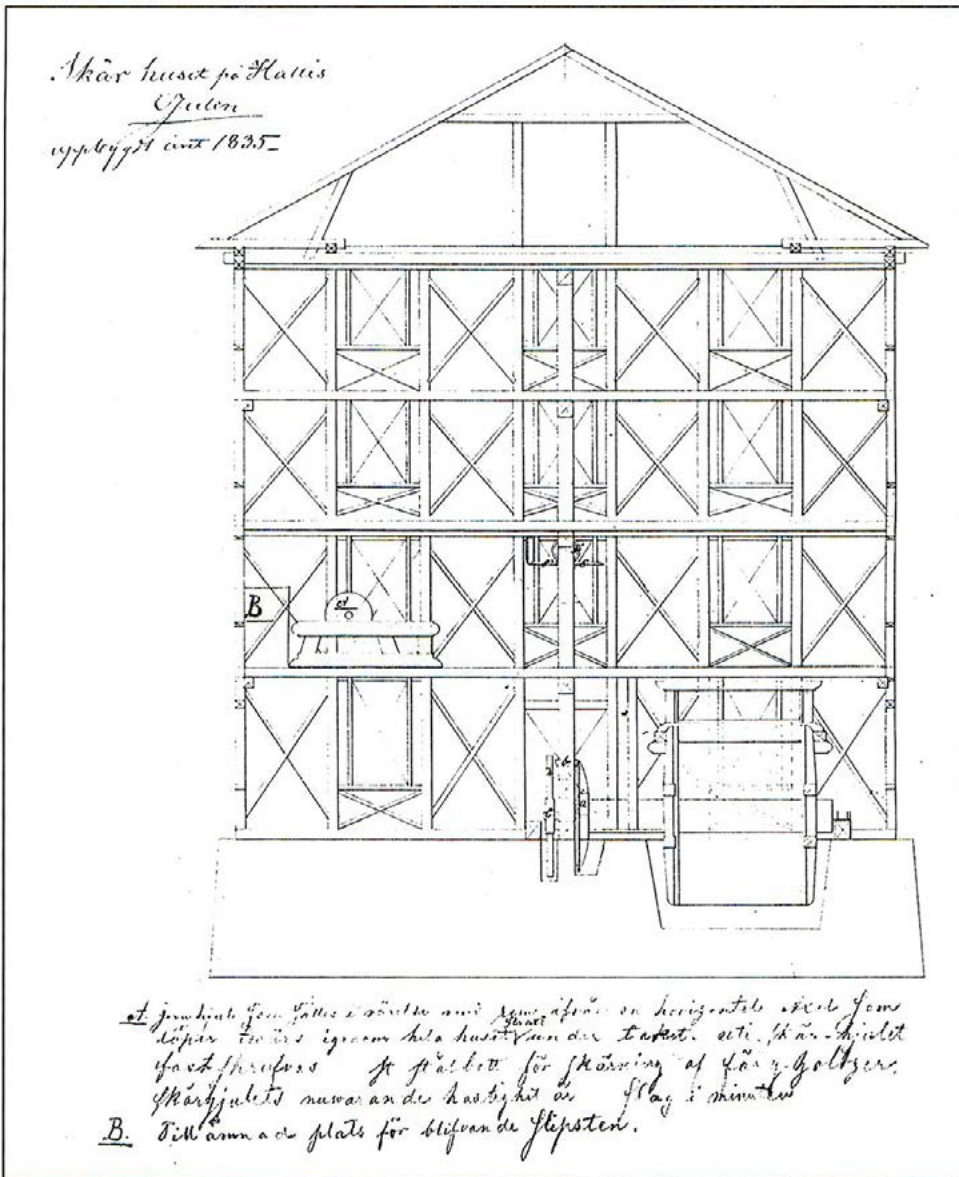 Skär huset på Hallis
Qulen
uppbygdt året 1835
B
A
A. jernhjul som sättes i rörelse med rem ifrån en horizontel axel som
löper tvärs igenom hela huset straxt under taket. uti Skär-hjulet
fastskrufvas st stålbett för skärning af färg-holtzer.
Skärhjulets nuvarande hastighet är slag i minuten
B. Till ämnade plats för blifvande slipsten.